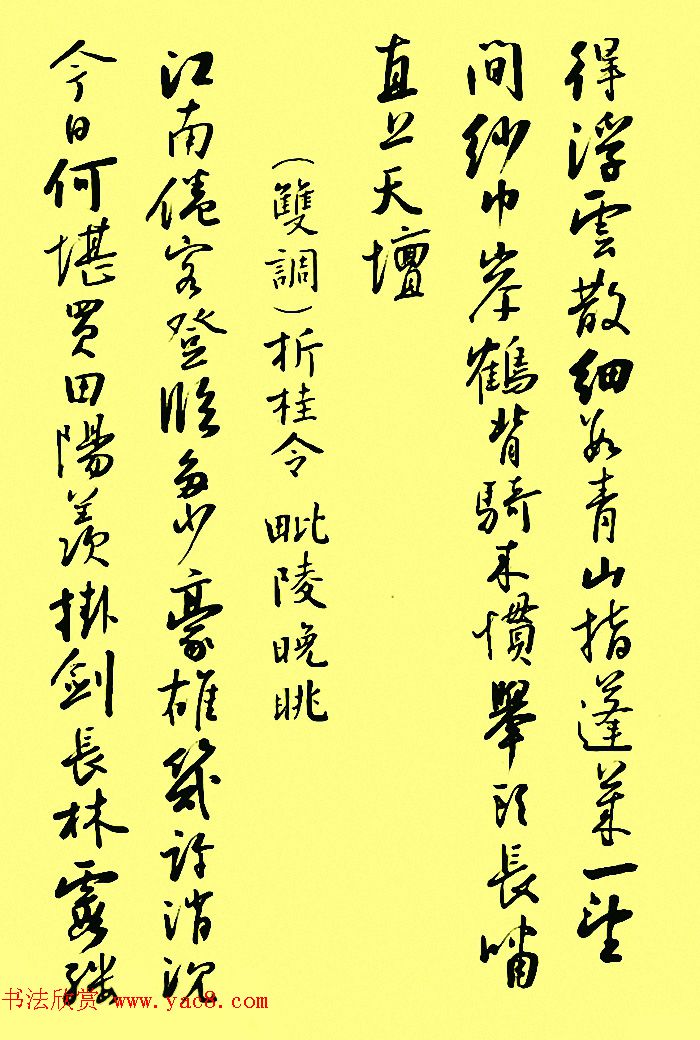 得浮雲散細數青山指蓬萊一望
間紗巾岸鶴背騎來慣舉頭長嘯
直上天壇
(雙調)折桂令 毗陵晚眺
江南倦客登臨多少豪雄幾許消沉
今日何堪買田陽羨掛劍長林霞縷
书法欣赏 www.yac8.com